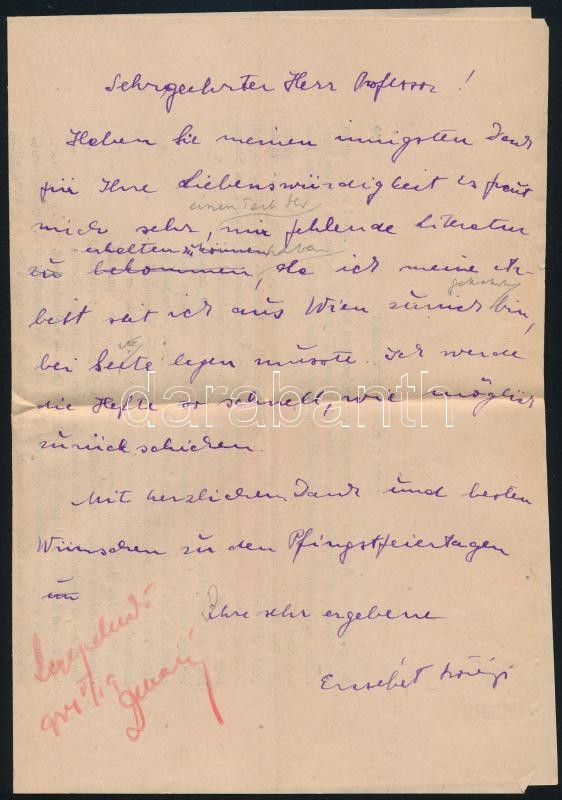 Sehrgeehrter Herr Professor!
Haben Sie meinen innigsten Dank
für Ihre Liebenswürdigkeit es freut
einen Teil der
mich sehr, mir fehlende Literatur
erhalten zu können haben
zu bekommen, da ich meine Ar-
gekehrt
beit seit ich aus Wien zurück bin,
bei Seite legen musste. Ich werde
die Hefte so schnell, wie möglich
darabanth
zurück schicken.
Mit herzlichem Dank und besten
Wünschen zu den Pfingstfeiertagen
un
Ihre sehr ergebene
Erzsébet